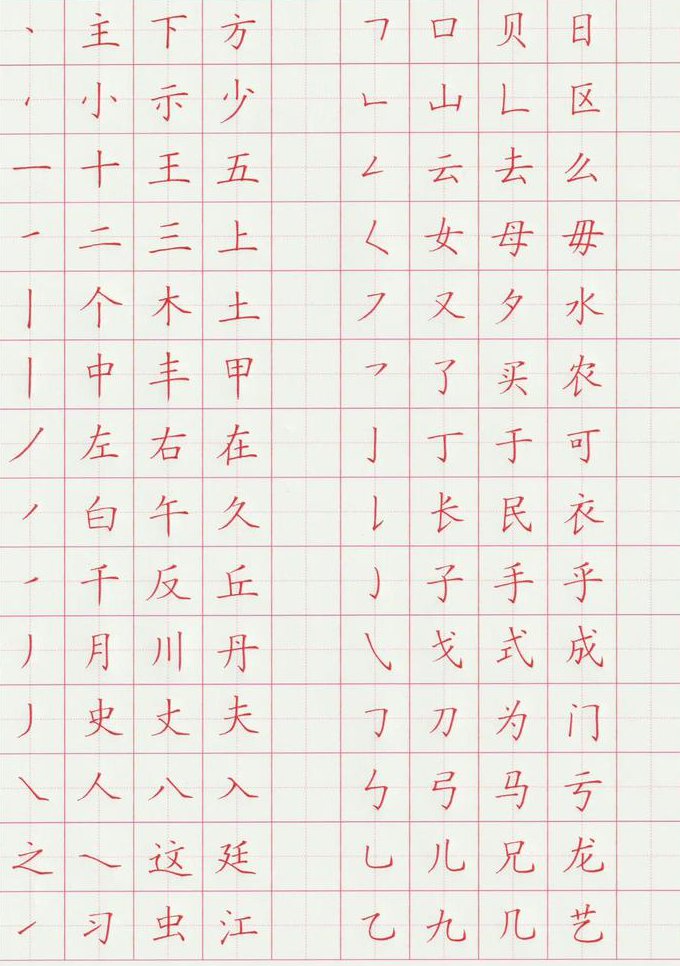 丶 主 下 方 ㇕ 口 贝 日
丶 小 示 少 ㇗ 山 ㇄ 区
一 十 王 五 ㇜ 云 去 么
一 二 三 上 ㇛ 女 母 毋
丨 个 木 土 ㇇ 又 夕 水
丨 中 丰 甲 乛 了 买 农
丿 左 右 在 亅 丁 于 可
丿 白 午 久 ㇙ 长 民 衣
㇒ 千 反 丘 ㇁ 子 手 乎
丿 月 川 丹 ㇂ 戈 式 成
丿 史 丈 夫 ㇆ 刀 为 门
㇏ 人 八 入 ㇉ 弓 马 亏
之 ㇏ 这 廷 乚 儿 兄 龙
㇀ 习 虫 江 乙 九 几 艺